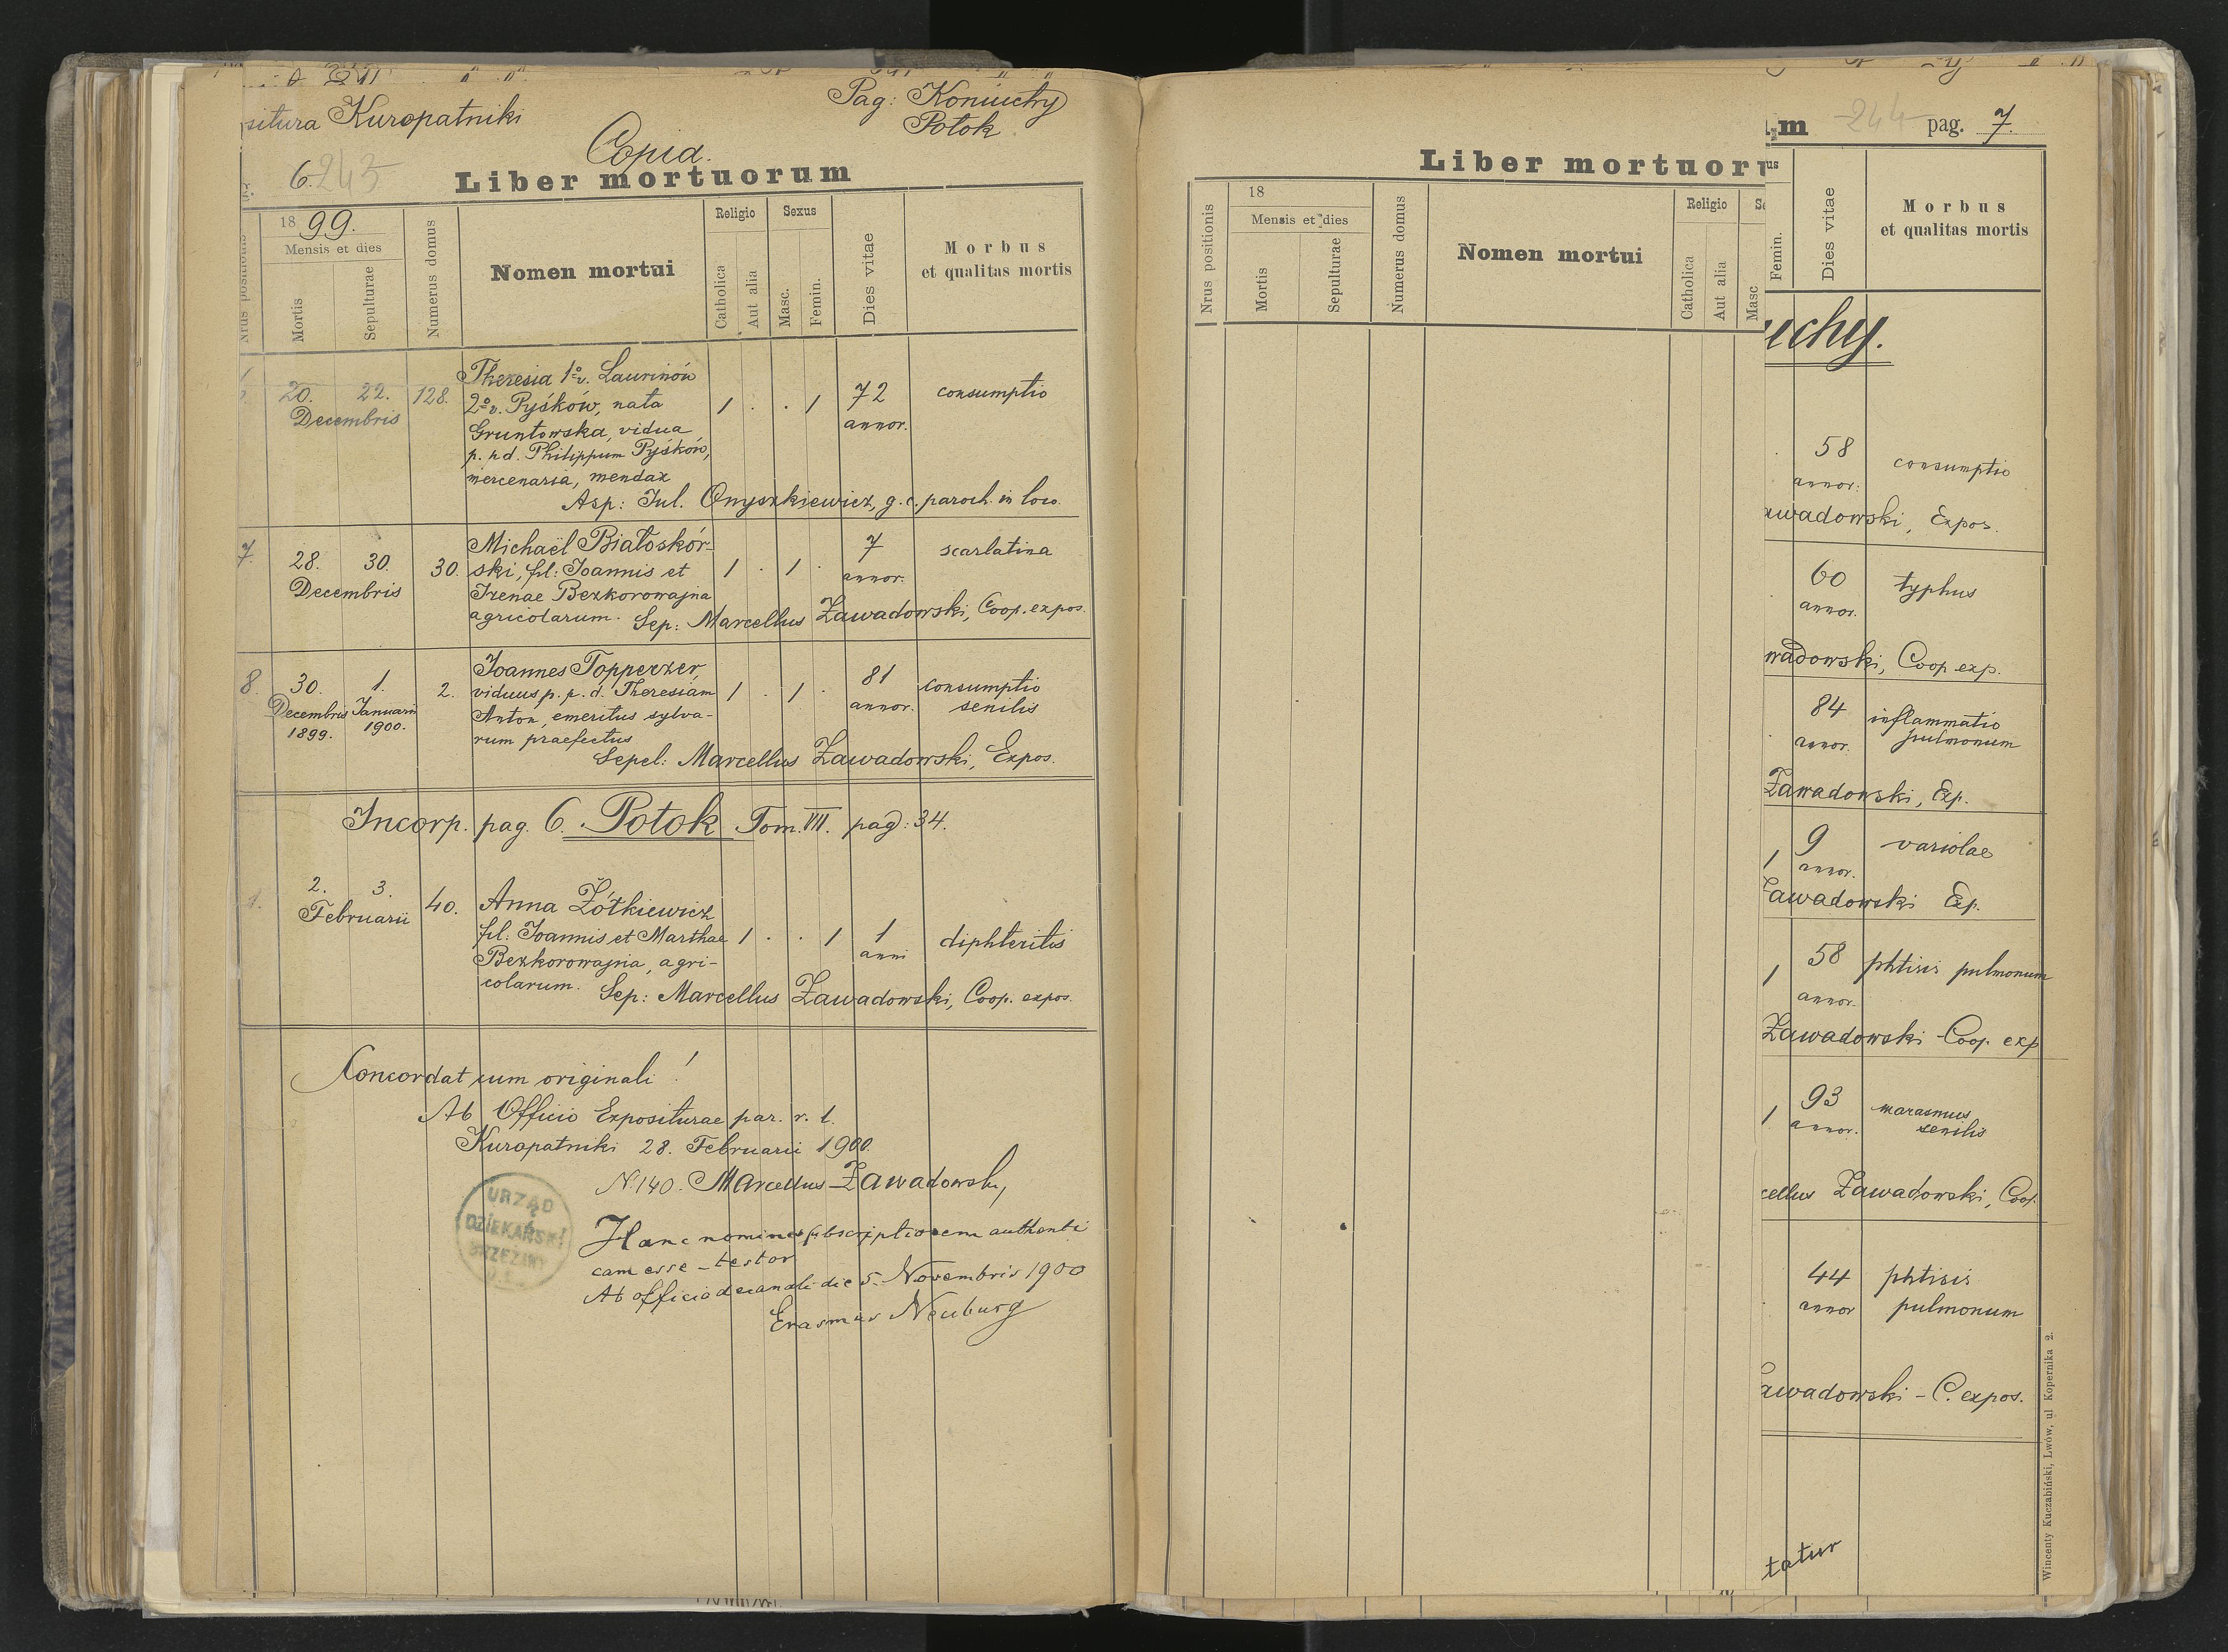 situra Kuropatniki
Pag: Koniuchy
Potok
Copia.
6. 243
Liber mortuorum
Nrus positionis
1899.
Mensis et dies
Mortis
Sepulturae
Numerus domus
Nomen mortui
Religio
Catholica
Aut alia
Sexus
Masc.
Femin.
Dies vitae
Morbus
et qualitas mortis
20. 22. 128.
Decembris
Theresia 1º v. Laurinów
2º v. Pyśków, nata
Gruntowska, vidua
p. p. d. Philippum Pyśków,
mercenaria, mendax
1 . . 1
72
annor.
consumptio
Asp: Jul. Onyszkiewicz, g. c. paroch. in loco.
7. 28. 30. 30.
Decembris
Michaël Białoskór-
ski, fil: Joannis et
Irenae Bezkorowajna
agricolarum.
1 . 1 .
7
annor.
scarlatina
Sep: Marcellus Zawadowski, Coop. expos.
8. 30. 1. 2.
Decembris Januarii
1899. 1900.
Joannes Topperzer,
viduus p. p. d. Theresiam
Anton, emeritus sylva-
rum praefectus
1 . 1 .
81
annor.
consumptio
senilis
Sepel: Marcellus Zawadowski, Expos.
Incorp. pag. 6. Potok Tom. VII. pag: 34.
1. 2. 3. 40.
Februarii
Anna Żółkiewicz
fil: Joannis et Marthae
Bezkorowajna, agri-
colarum.
1 . . 1
1
anni
diphteritis
Sep: Marcellus Zawadowski, Coop. expos.
Concordat cum originali!
Ab Officio Expositurae par. r. l.
Kuropatniki 28. Februarii 1900.
N. 140. Marcellus Zawadowski
URZĄD
DZIEKAŃSKI
BRZEŻANY
Hanc nominis subscriptionem authenti
cam esse - testor
Ab officio decanali die 5. Novembris 1900
Erasmus Neuburg
Liber mortuoru
Nrus positionis
18
Mensis et dies
Mortis
Sepulturae
Numerus domus
Nomen mortui
Religio
Catholica
Aut alia
Se
Masc
m
244
pag. 7.
us
Femin.
Dies vitae
Morbus
et qualitas mortis
uchy.
58
annor.
consumptio
awadowski, Expos.
60
annor.
typhus
wadowski, Coop. exp.
84
annor.
inflammatio
pulmonum
Zawadowski, Exp.
1 9
annor.
variolae
Zawadowski Exp.
1 58
annor.
phtisis pulmonum
Zawadowski Coop. exp
1 93
annor.
marasmus
senilis
cellus Zawadowski, Coop.
44
annor
phtisis
pulmonum
awadowski - C. expos.
tatur
Wincenty Kuczabiński, Lwów, ul Kopernika 2.